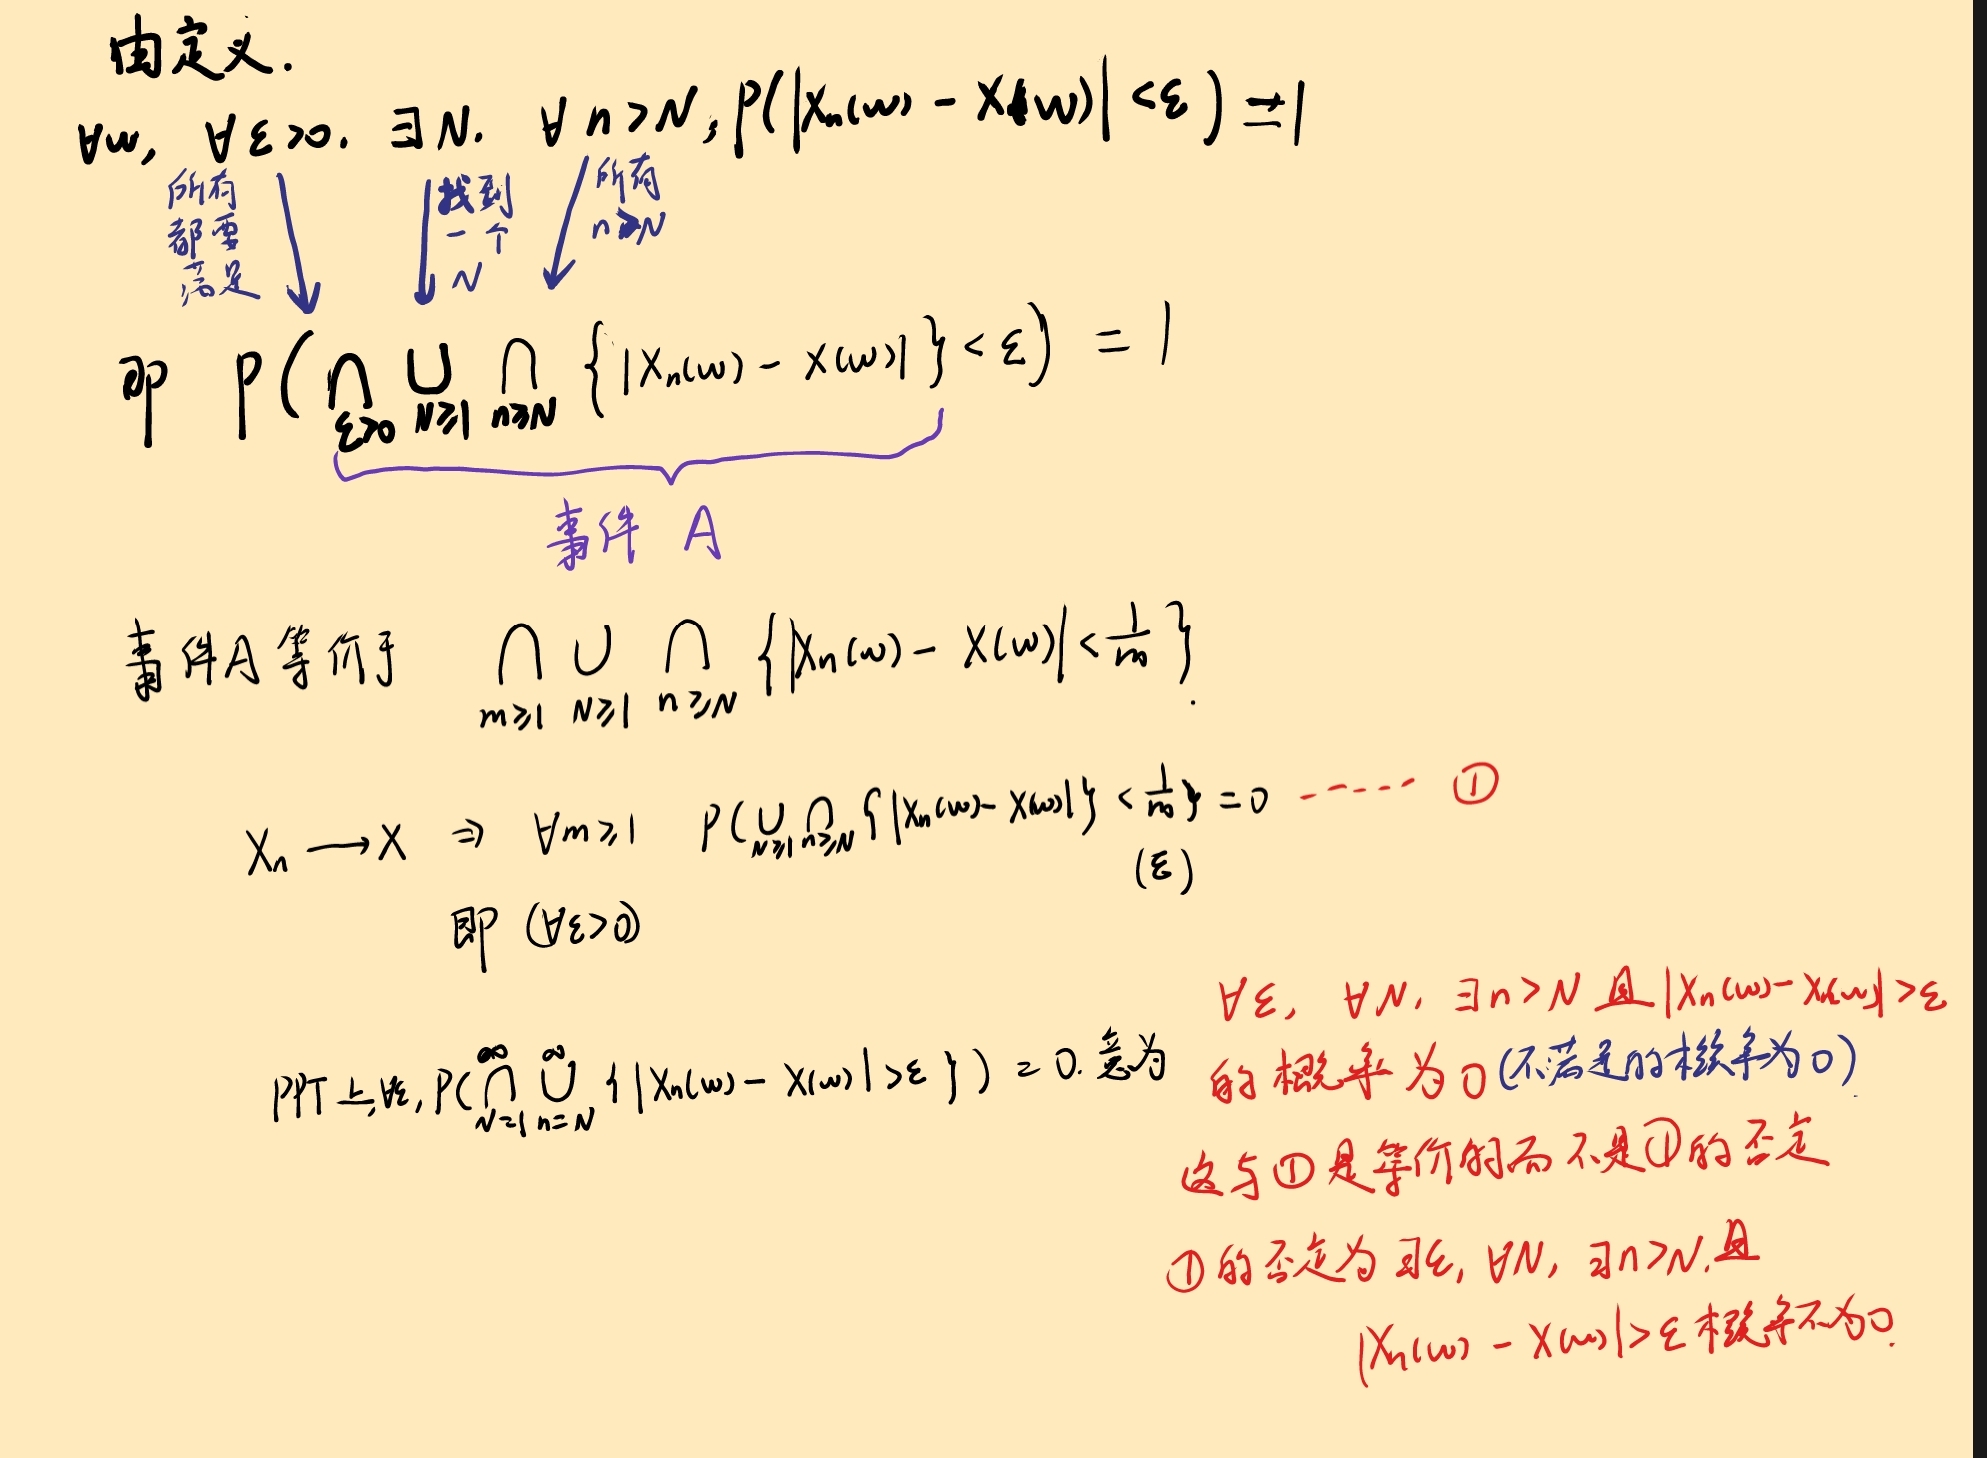 由定义.
∀w, ∀ε>0. ∃N. ∀n>N, P(|Xn(w) - X(w)| <ε) = 1
所有都要满足
找到一个N
所有n≥N
即 P(⋂ε>0 ⋃N≥1 ⋂n≥N {|Xn(w) - X(w)|} < ε) = 1
事件 A
事件A等价于 ⋂m≥1 ⋃N≥1 ⋂n≥N {|Xn(w) - X(w)| < 1/m}.
Xn → X ⇒ ∀m≥1 P(⋃N≥1 ⋂n≥N {|Xn(w) - X(w)|} < 1/m} = 0 ------ ①
(ε)
即 (∀ε>0)
PPT上,∀ε, P(⋂N=1^∞ ⋃n=N^∞ {|Xn(w) - X(w)| >ε}) = 0. 意为
∀ε, ∀N. ∃n>N 且|Xn(w) - X(w)| >ε
的概率为0 (不满足的概率为0).
这与①是等价的而不是①的否定
①的否定为∃ε, ∀N, ∃n>N.且
|Xn(w) - X(w)|>ε概率不为0.